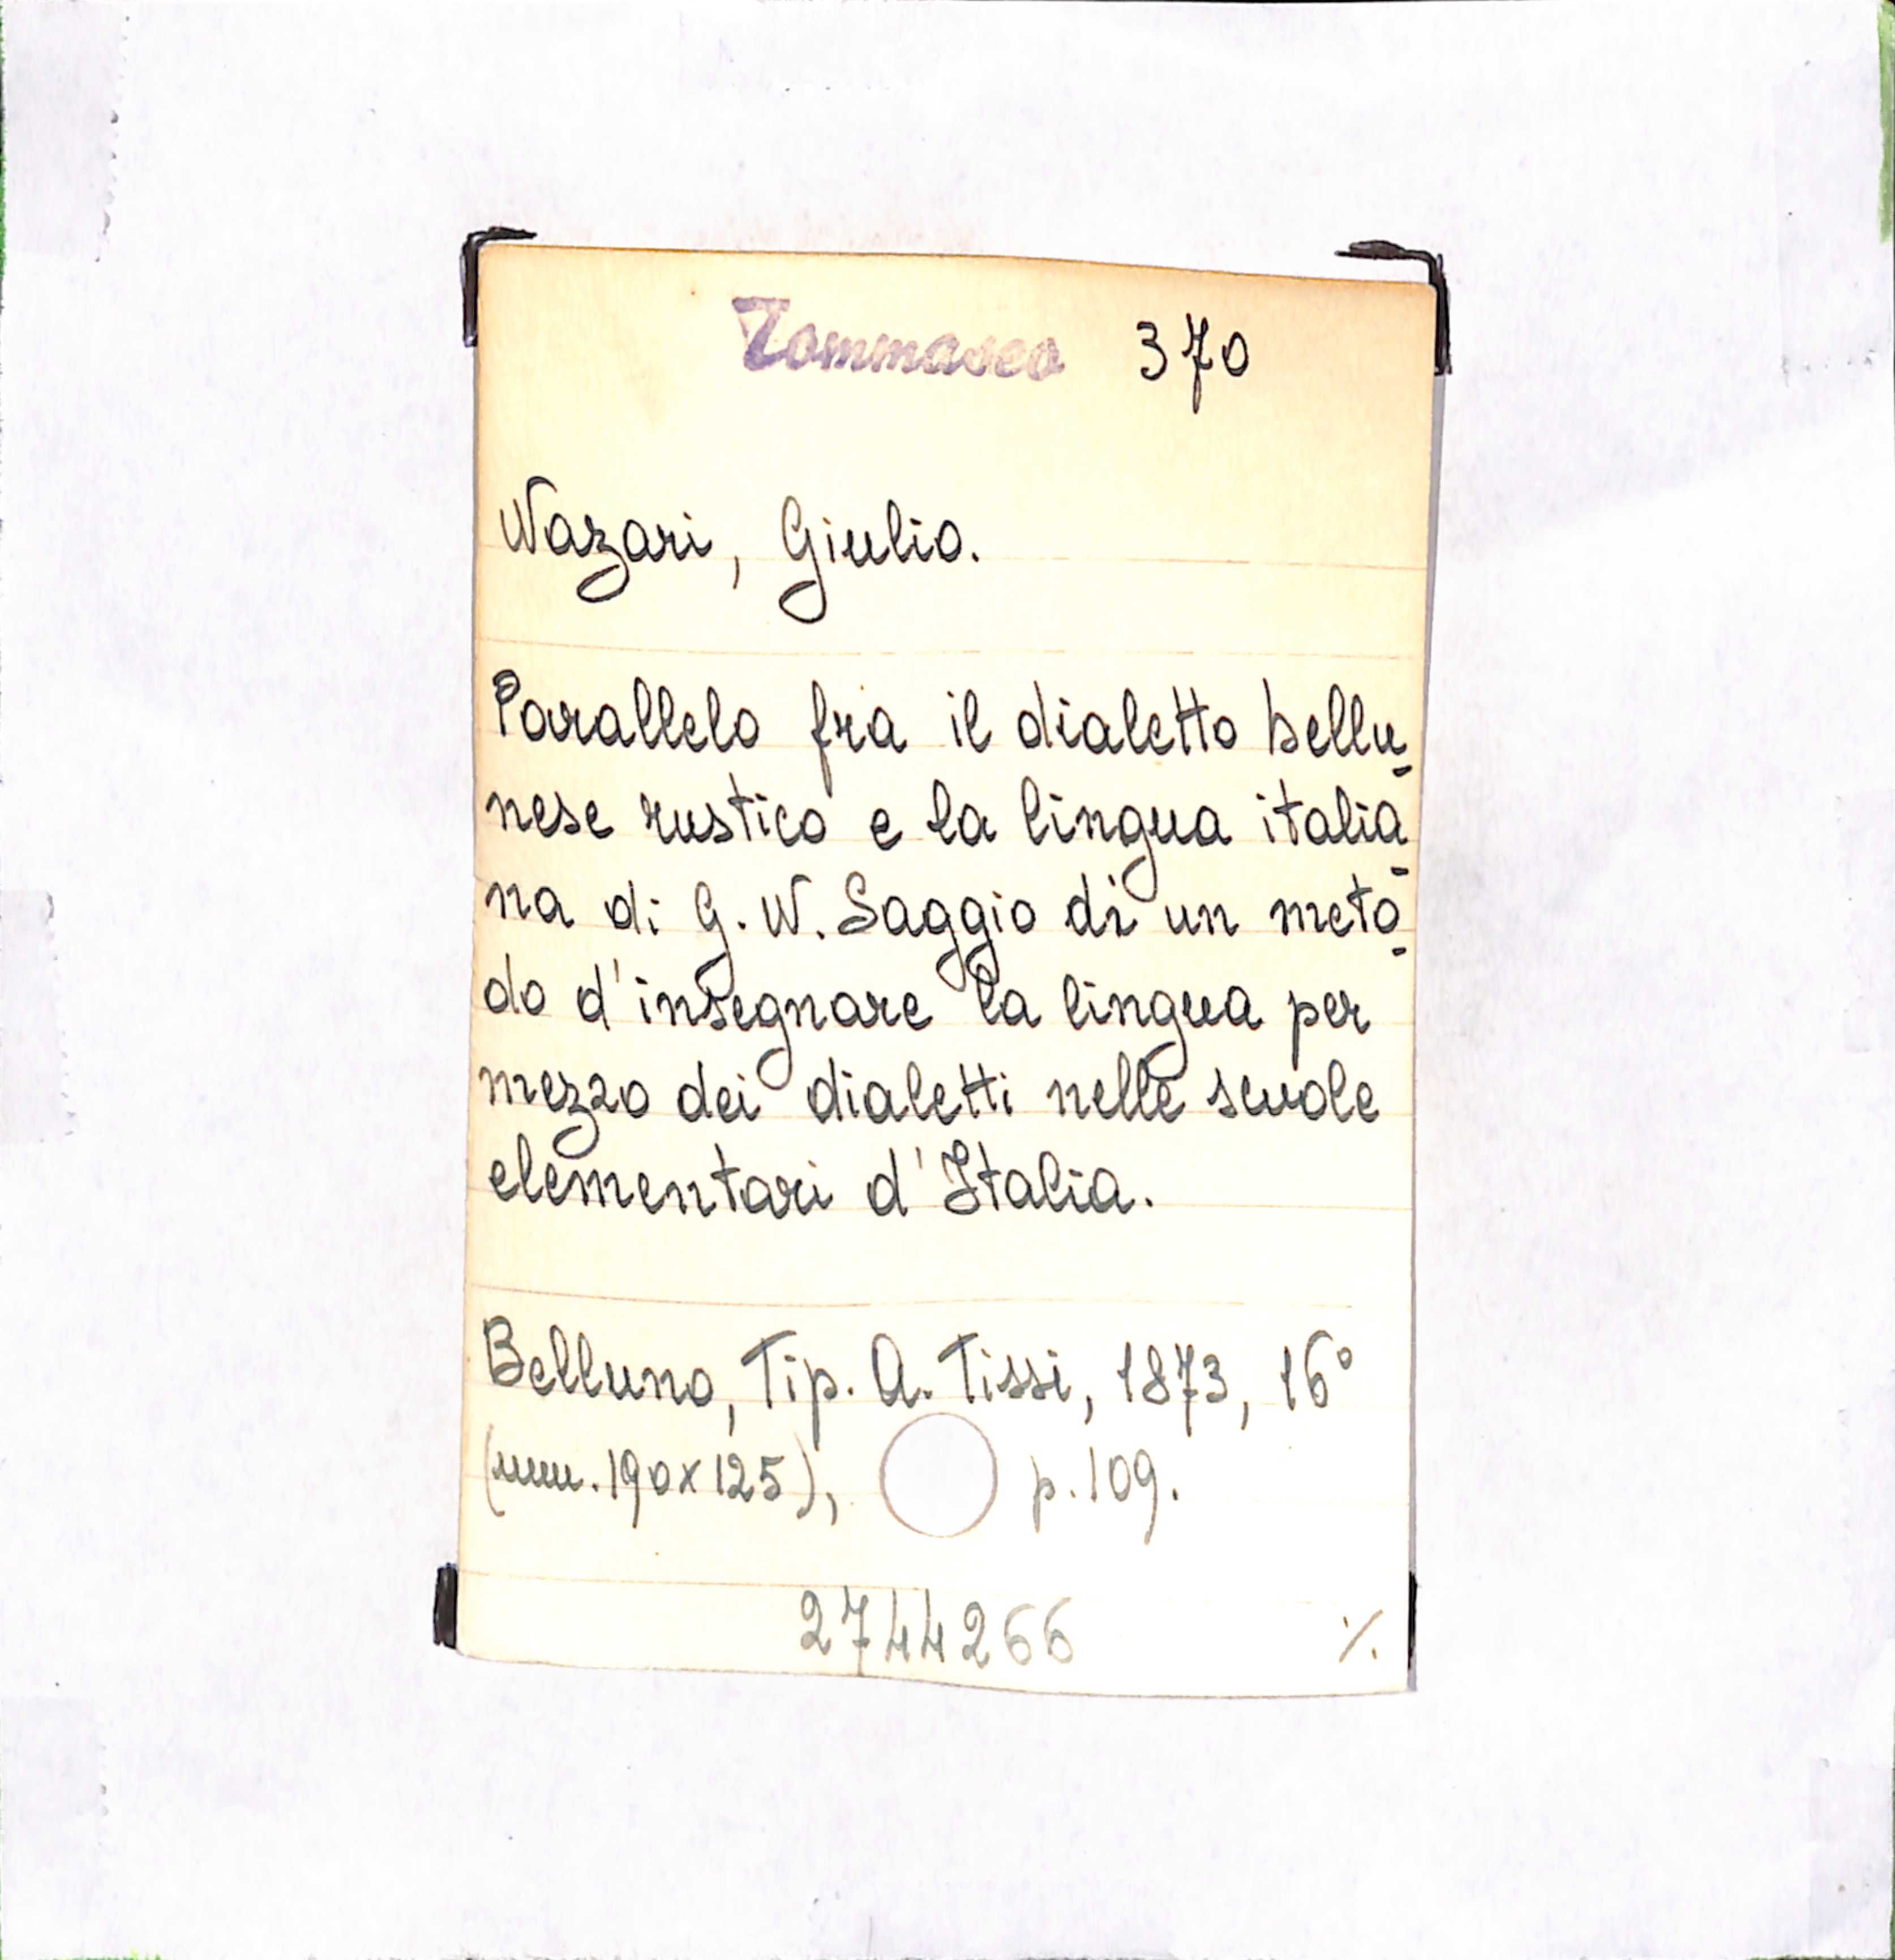 Tommaseo 370
Nazari, Giulio.
Parallelo fra il dialetto bellu-
nese rustico e la lingua italia-
na di G. N. Saggio di un meto-
do d'insegnare la lingua per
mezzo dei dialetti nelle scuole
elementari d'Italia.
Belluno, Tip. A. Tissi, 1873, 16°
(mm. 190x125), p. 109.
2744266 ./.